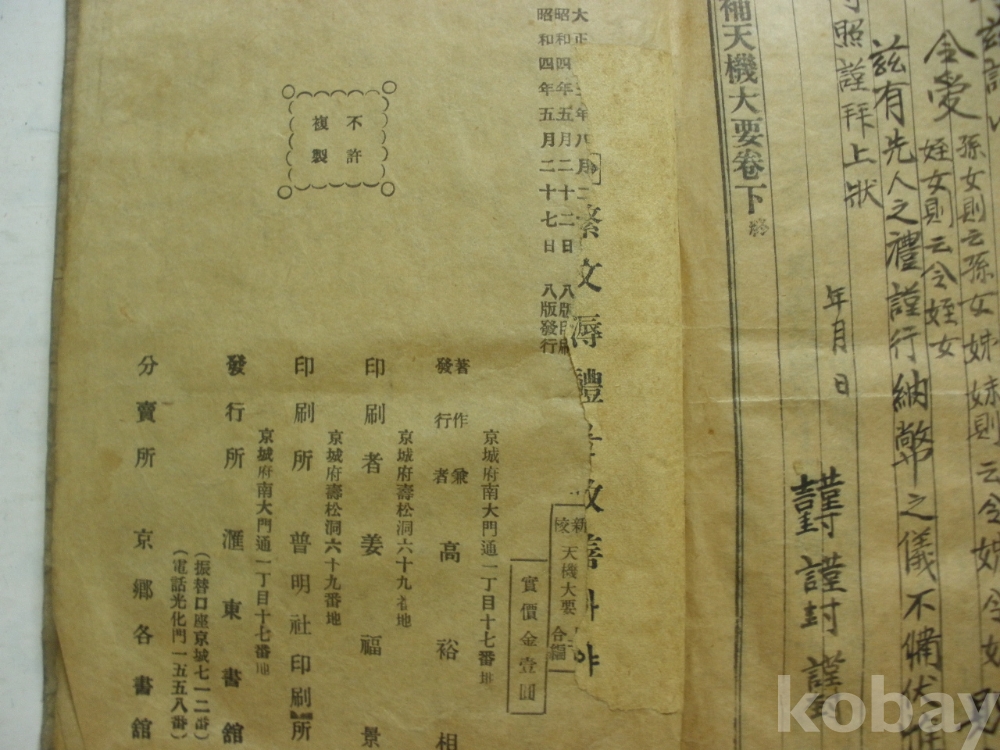 令愛
孫女則云孫女姊妹則云令姊令妹
姪女則云令姪女
玆有先人之禮謹行納幣之儀不備伏惟
照謹拜上狀
年 月 日
謹封 謹封
補天機大要卷下終
繁文
昭和四年五月二十二日 八版印刷
昭和四年五月二十七日 八版發行
不許
複製
新校 天機大要 合編
實價金壹圓
京城府南大門通一丁目十七番地
著作兼
發行者 高裕相
京城府壽松洞六十九番地
印刷者 姜福景
京城府壽松洞六十九番地
印刷所 普明社印刷所
京城府南大門通一丁目十七番地
發行所 滙東書舘
(振替口座京城七一二番)
(電話光化門一五五八番)
分賣所 京鄉各書舘
kobay